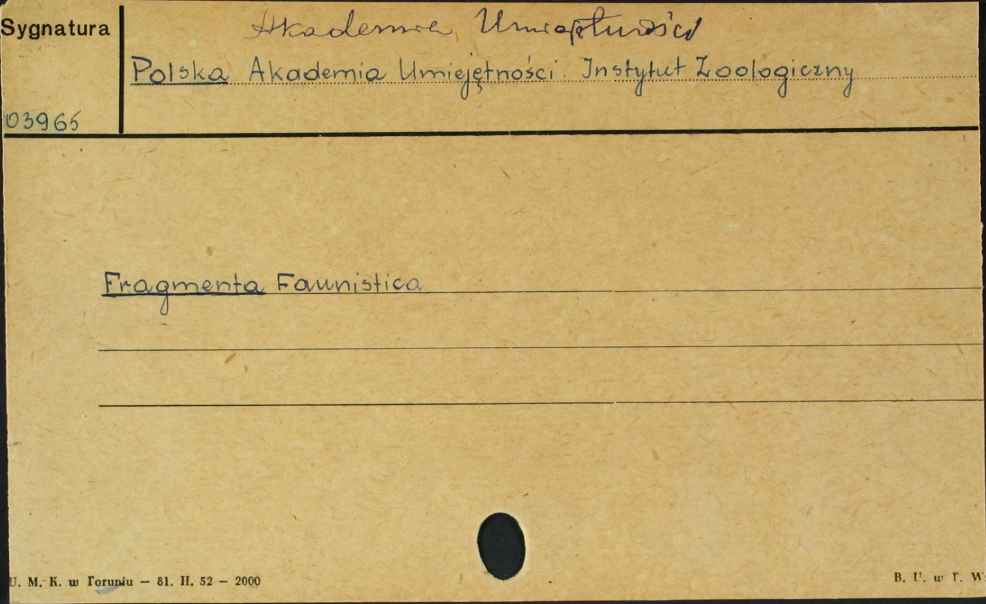 Akademia Umiejętności
Sygnatura
Polska Akademia Umiejętności. Instytut Zoologiczny
03965
Fragmenta Faunistica
U. M. K. w Toruniu — 81. II. 52 — 2000
B. U. w T. W